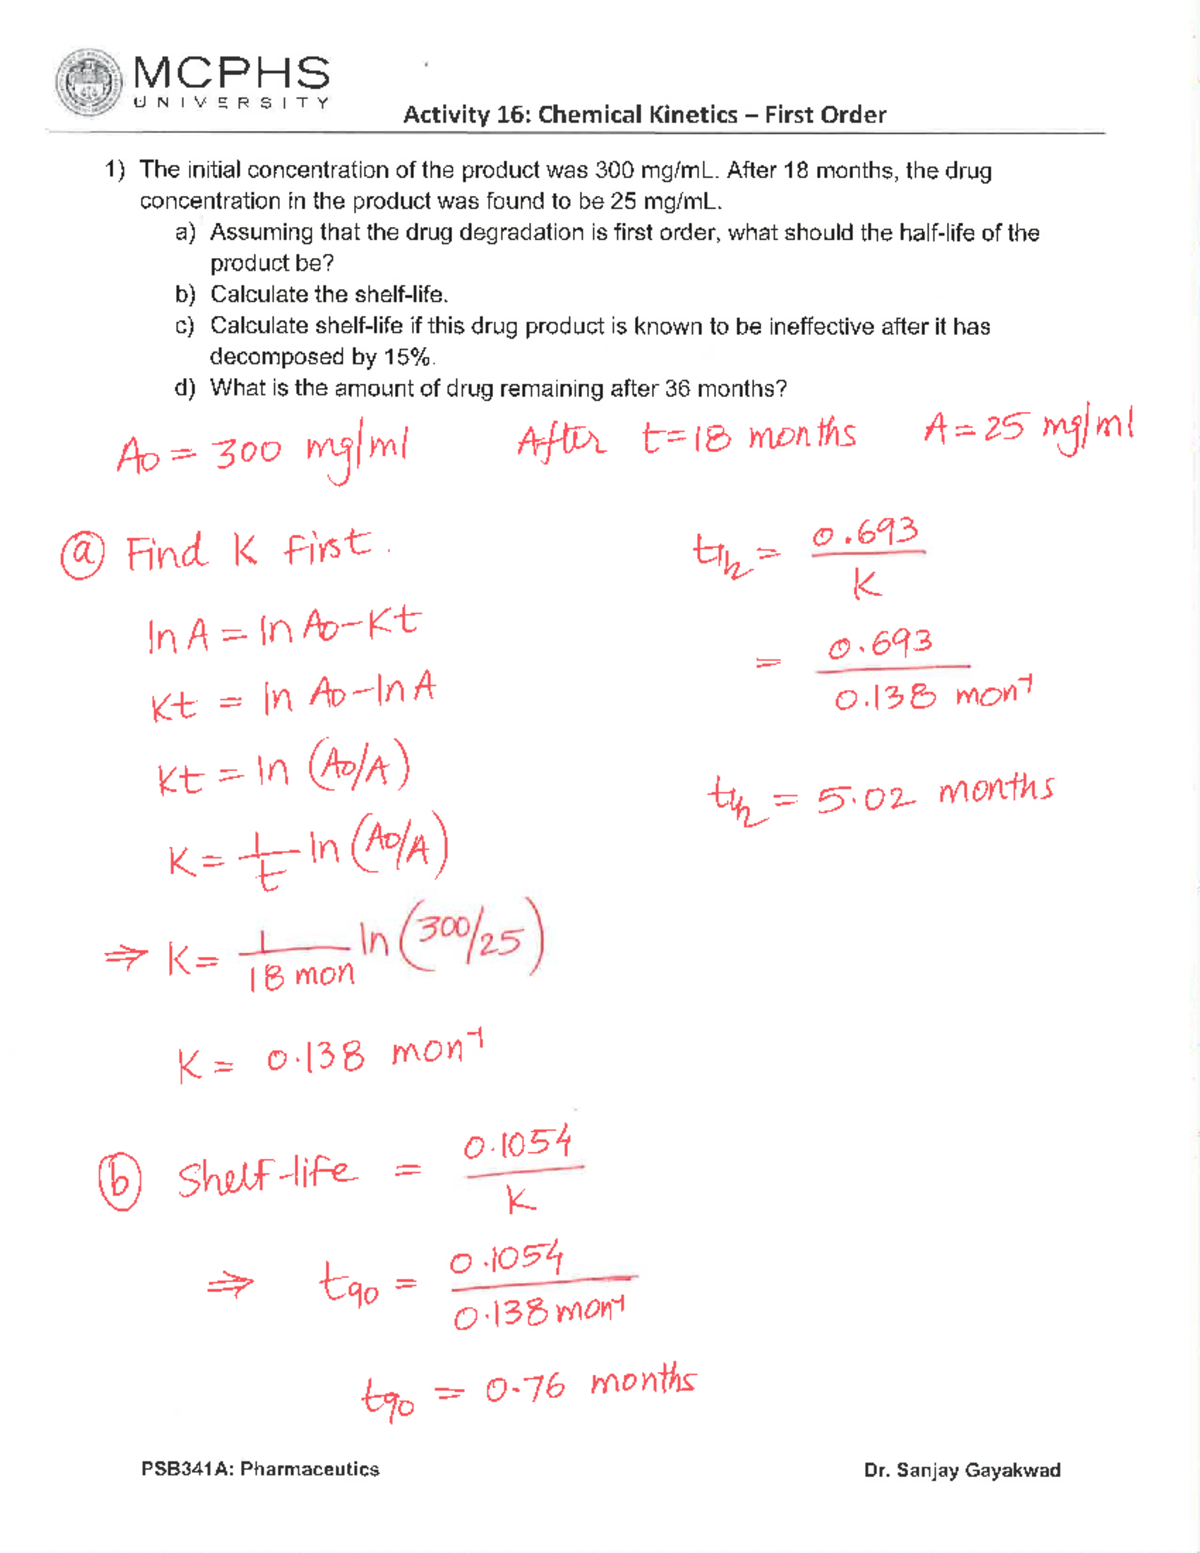 MCPHS
UNIVERSITY
Activity 16: Chemical Kinetics – First Order
1) The initial concentration of the product was 300 mg/mL. After 18 months, the drug
concentration in the product was found to be 25 mg/mL.
a) Assuming that the drug degradation is first order, what should the half-life of the
product be?
b) Calculate the shelf-life.
c) Calculate shelf-life if this drug product is known to be ineffective after it has
decomposed by 15%.
d) What is the amount of drug remaining after 36 months?
A0 = 300 mg/ml After t=18 months A=25 mg/ml
(a) Find K first.
ln A = ln A0 - Kt
Kt = ln A0 - ln A
Kt = ln (A0/A)
K = 1/t ln (A0/A)
⇒ K = 1/18 mon ln (300/25)
K = 0.138 mon⁻¹
t1/2 = 0.693/K
= 0.693/0.138 mon⁻¹
t1/2 = 5.02 months
(b) Shelf-life = 0.1054/K
⇒ t90 = 0.1054/0.138 mon⁻¹
t90 = 0.76 months
PSB341A: Pharmaceutics Dr. Sanjay Gayakwad